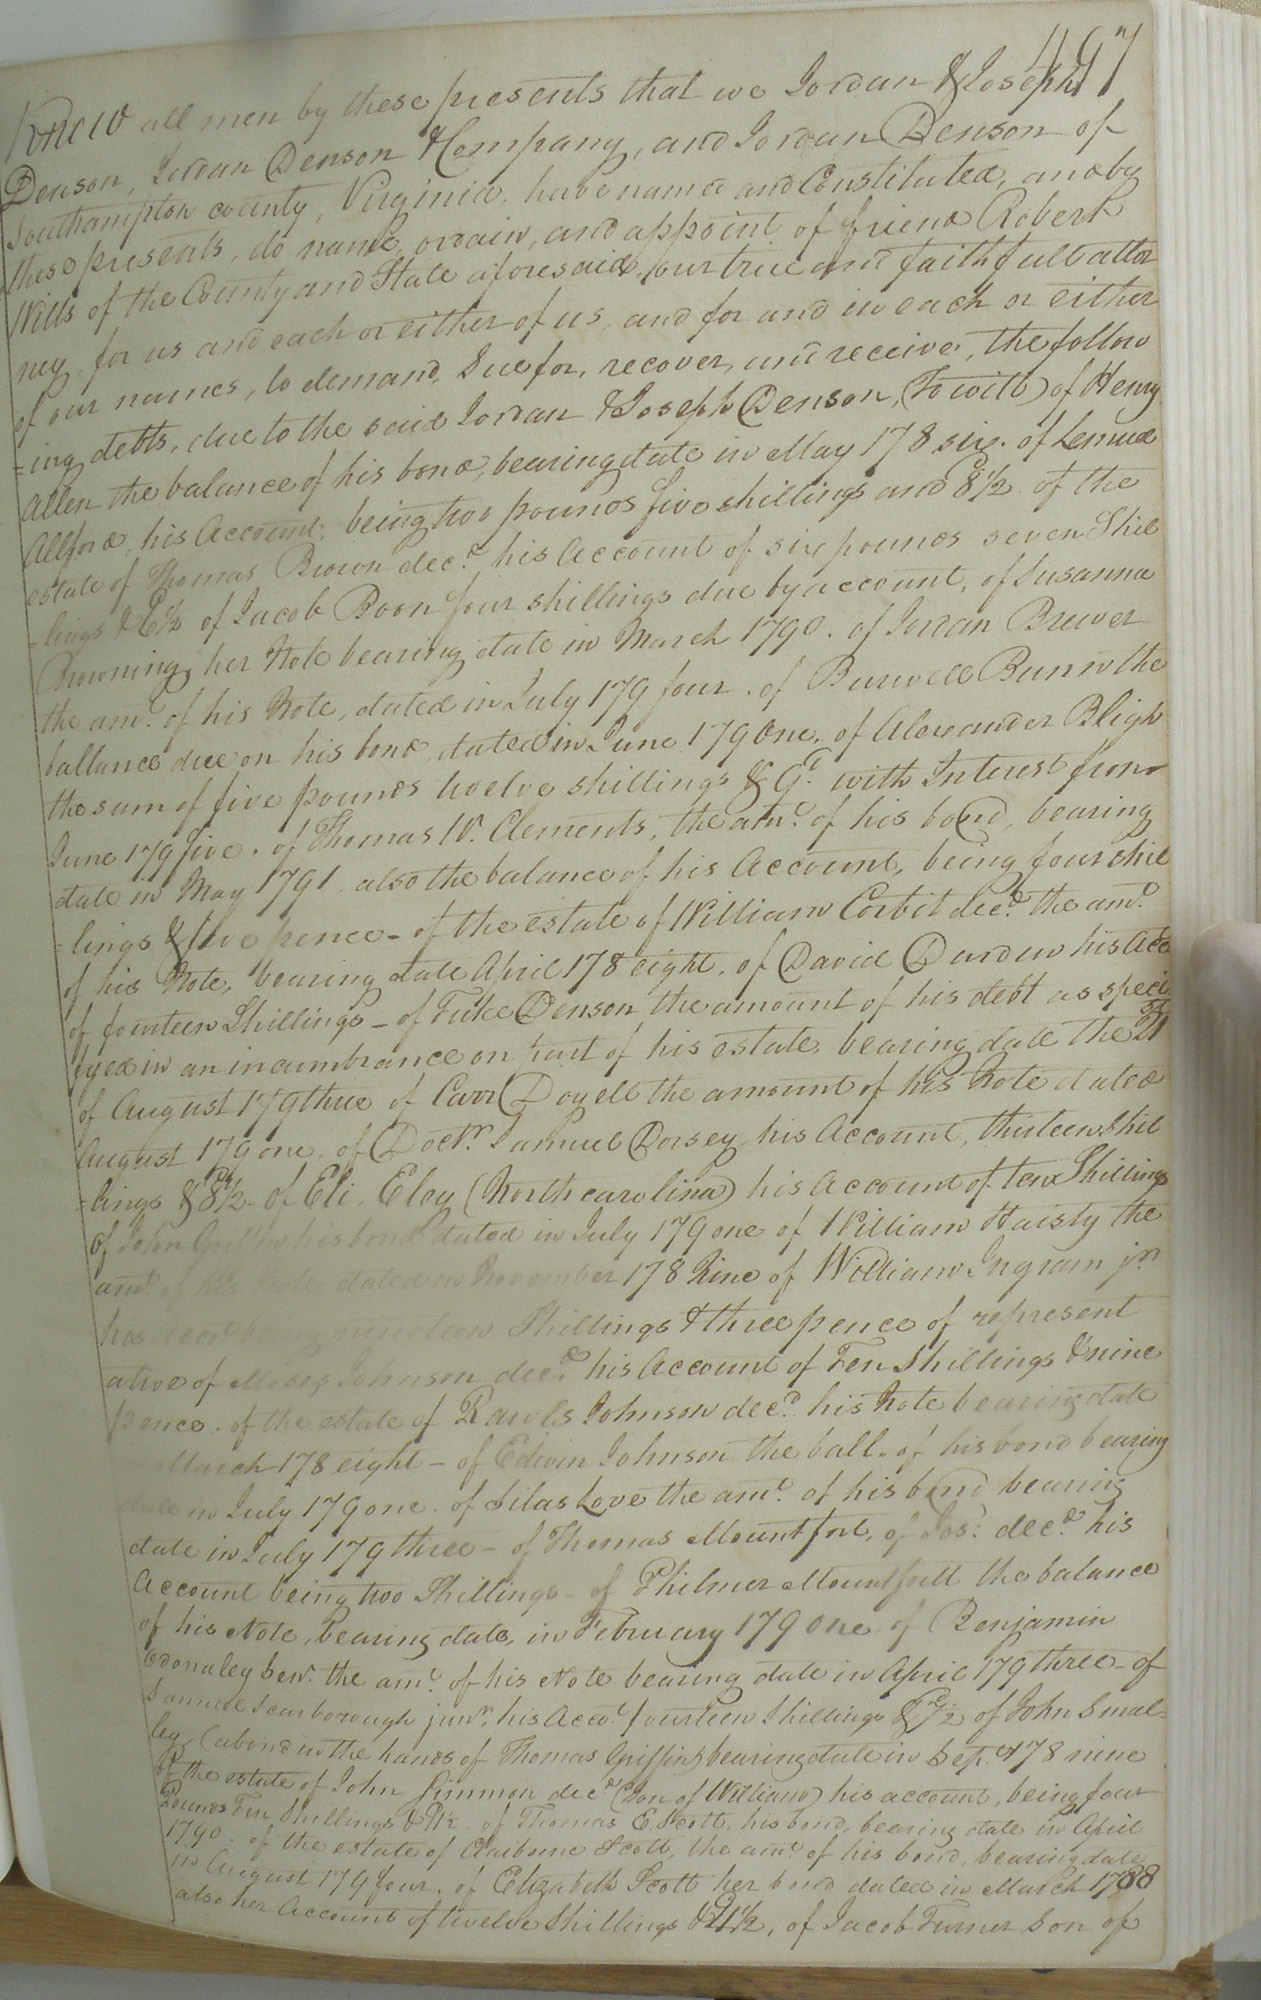 497
Know all men by these presents that we Jordan & Joseph
Denson, Jordan Denson & Company, and Jordan Denson of
Southampton county, Virginia, have named and Constituted, and by
these presents, do name, ordain, and appoint of friend Robert
Wills of the County and State aforesaid, our true and faithfull attor
ney, for us and each or either of us, and for and in each or either
of our names, to demand, Sue for, recover, and receive, the follow
-ing debts, due to the said Jordan & Joseph Denson, (To wit) of Henry
Allen the balance of his bond, bearing date in May 178 six. of Lemuel
Allford, his Account, being two pounds five shillings and 8½ of the
estate of Thomas Brown decd. his Account of six pounds seven Shil
-lings & 6½ of Jacob Boon four shillings due by account, of Susanna
Browning, her Note bearing date in March 1790. of Jordan Brewer
the amt. of his Note, dated in July 179 four. of Burwell Bunn the
ballance due on his bond, dated in June 179 One. of Alexander Bligh
the sum of five pounds twelve shillings & 9d. with Interest from
June 179 five. of Thomas W. Clements, the amt. of his bond, bearing
date in May 1791. also the balance of his Account, being four shil
-lings & five pence - of the estate of William Corbit decd. the amt.
of his Note, bearing date April 178 eight. of David Durden his Acct
of fourteen Shillings - of Tuke Denson the amount of his debt as speci
fyed in an incumbrance on part of his estate, bearing date the 21st
of August 179 three of Carr Doyell the amount of his Note dated
August 179 one, of Doctr. Samuel Dorsey, his Account, thirteen Shil
-lings & 8½ - of Eli. Eley (North carolina) his Account of ten Shillings
of John his bond dated in July 179 one of William Haisty the
amt. of his note dated in November 178 Nine of William Ingram jr.
his Acct. nineteen Shillings & three pence of represent
ative of Moses Johnson decd. his Account of Ten Shillings & nine
pence. of the estate of Rawls Johnson decd. his Note bearing date
March 178 eight - of Edwin Johnson the ball. of his bond bearing
date in July 179 one. of Silas Love the amt. of his bond bearing
date in July 179 three - of Thomas Mountfort, of Jos: decd. his
Account being two Shillings - of Philmer Mountfortt the balance
of his Note, bearing date, in February 179 one. of Benjamin
Senr. the amt. of his Note bearing date in April 179 three - of
Samuel Scarborough junr. his Acct. fourteen Shillings & 7½ of John Smal-
ley (a bond in the hands of Thomas Griffin) bearing date in Sept. 178 nine
of the estate of John Simmon decd. (Son of William) his account, being four
Pounds Ten Shillings & of Thomas E. Scott, his bond, bearing date in April
1790. of the estate of Claiborne Scott, the amt. of his bond, bearing date
in August 179 four. of Elizabeth Scott her bond dated in March 1788
also her Account of twelve Shillings & 11½, of Jacob Turner Son of